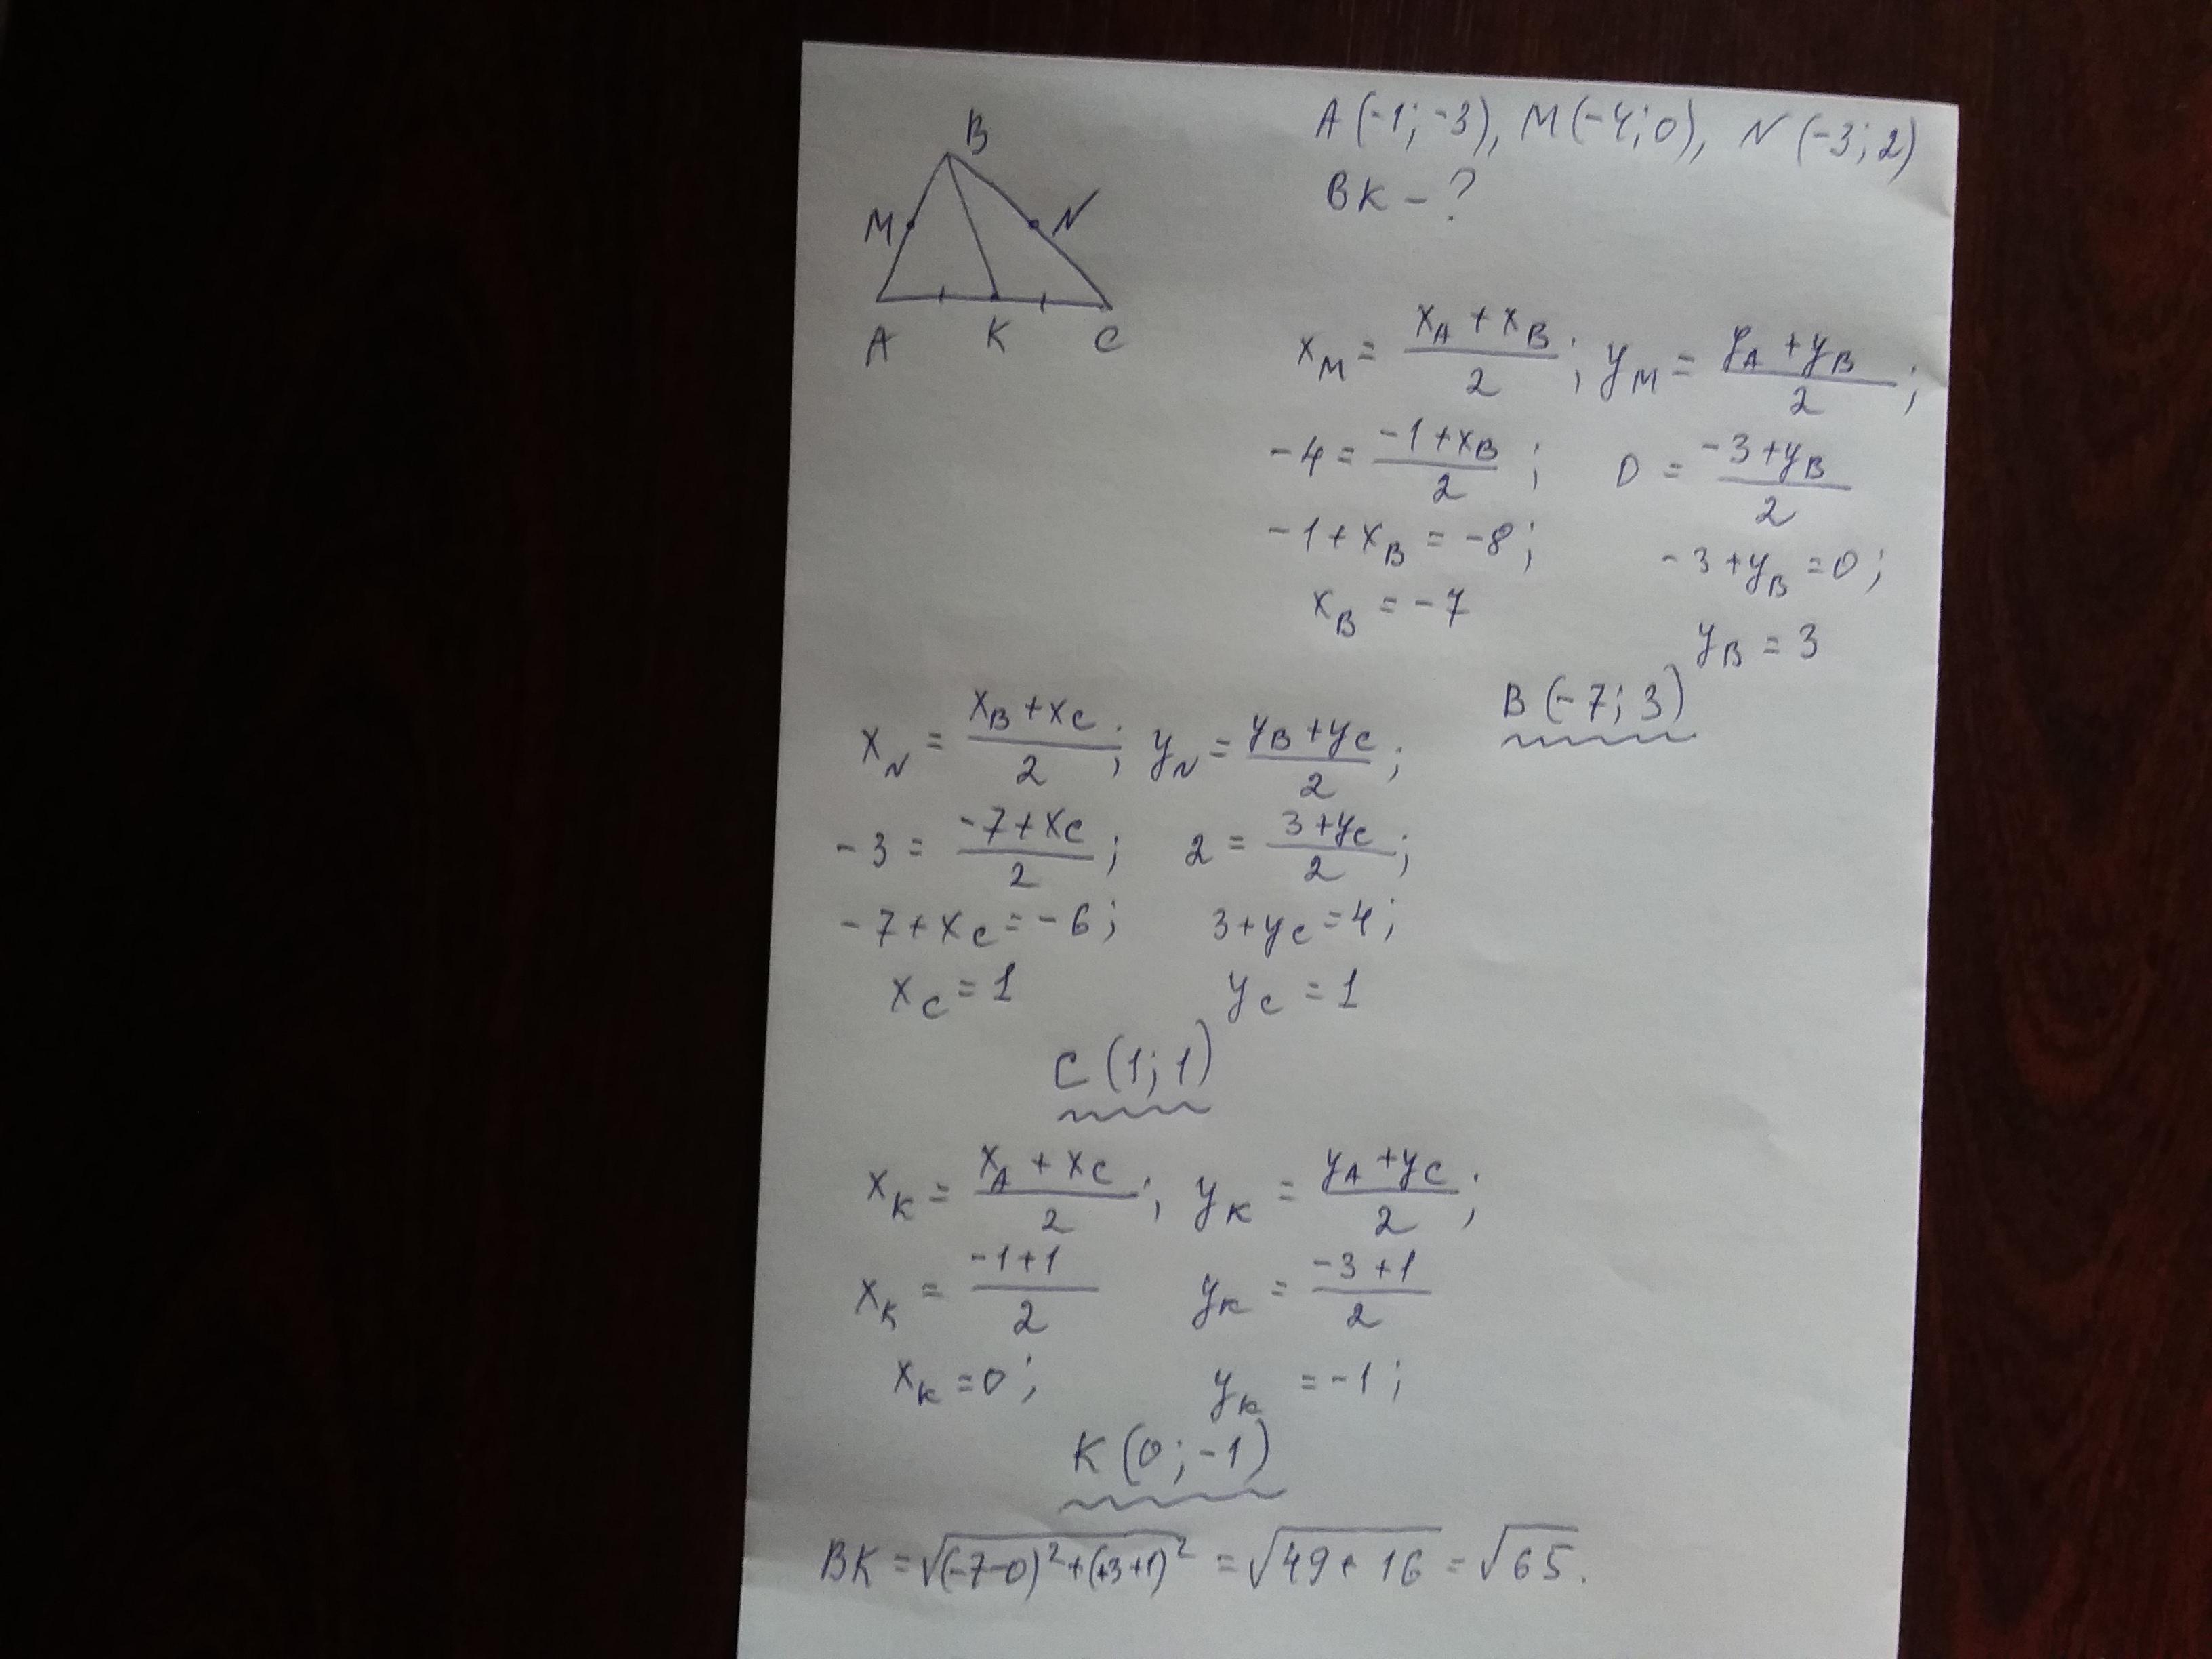 B
M N
A K C
A(-1;-3), M(-4;0), N(-3;2)
BK-?
x_M = (x_A + x_B)/2; y_M = (y_A + y_B)/2;
-4 = (-1+x_B)/2; 0 = (-3+y_B)/2
-1+x_B = -8; -3+y_B = 0;
x_B = -7
y_B = 3
B(-7;3)
x_N = (x_B+x_C)/2; y_N = (y_B+y_C)/2;
-3 = (-7+x_C)/2; 2 = (3+y_C)/2;
-7+x_C = -6; 3+y_C = 4;
x_C = 1 y_C = 1
C(1;1)
x_K = (x_A + x_C)/2; y_K = (y_A + y_C)/2;
x_K = (-1+1)/2 y_K = (-3+1)/2
x_K = 0; y_K = -1;
K(0;-1)
BK = √((-7-0)²+(+3+1)²) = √(49+16) = √65.